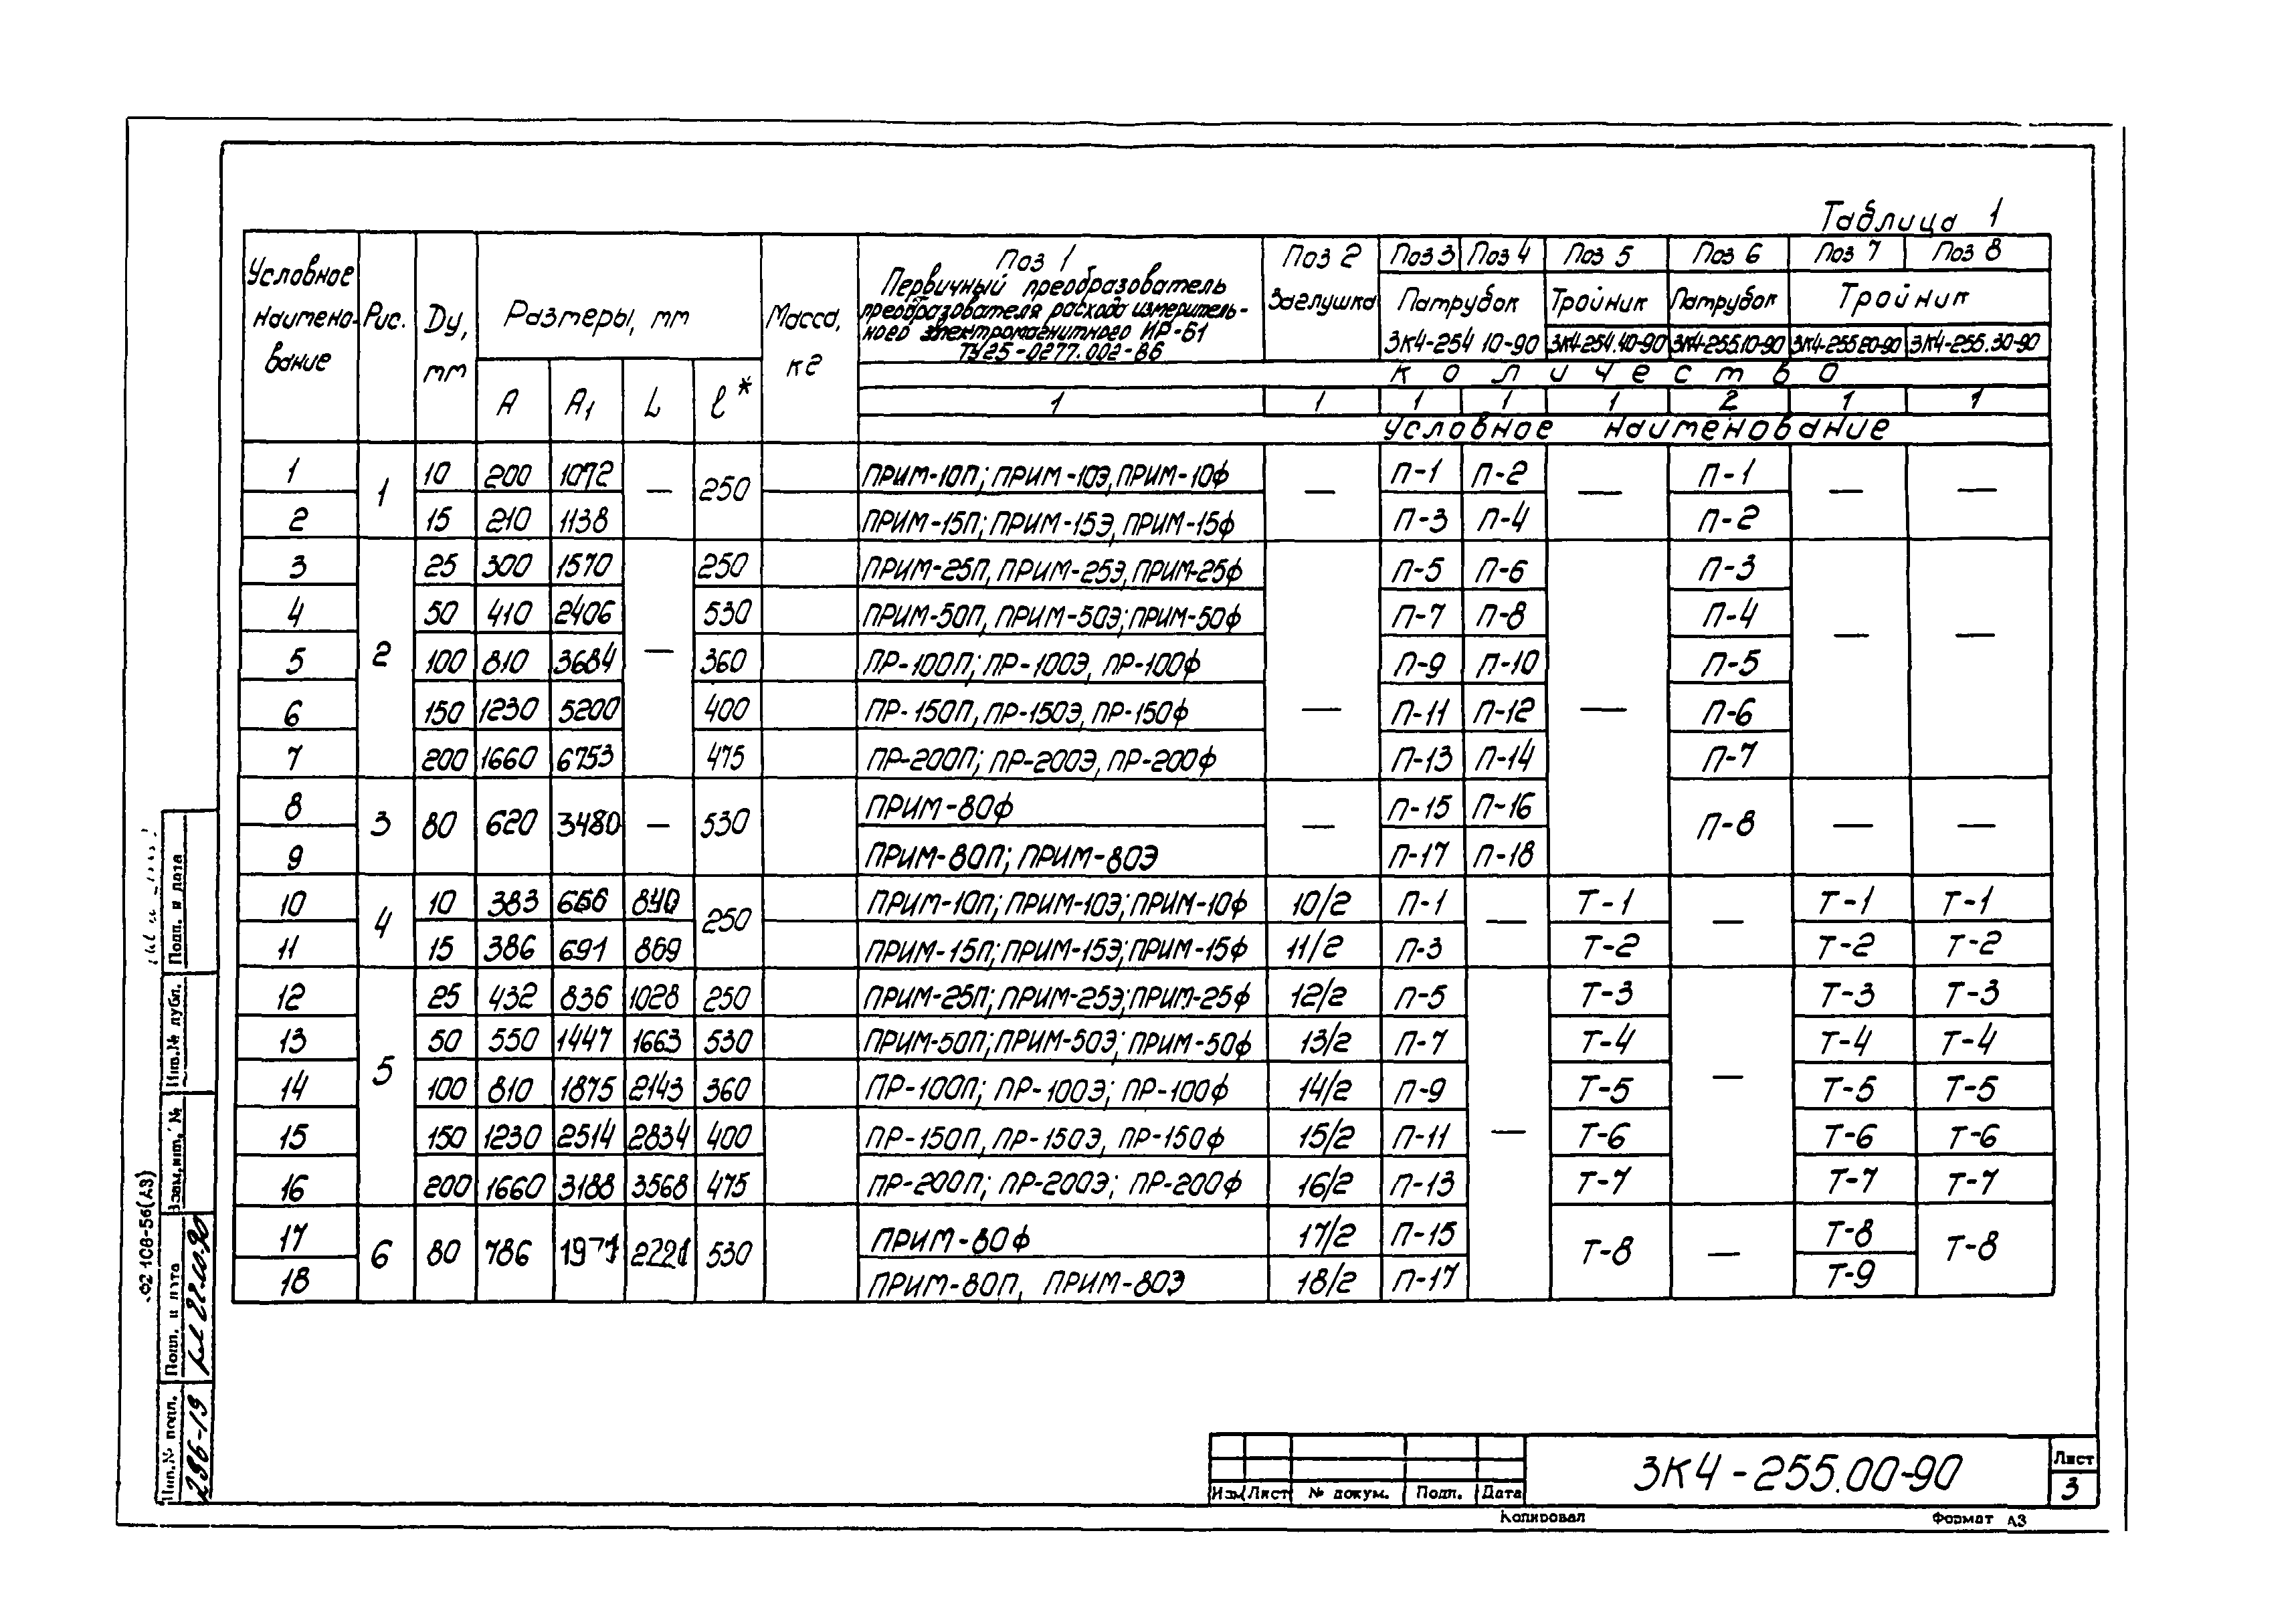 Таблица 1
Условное наимено-вание Рис. Dу, мм Размеры, мм Масса, кг Поз 1 Поз 2 Поз 3 Поз 4 Поз 5 Поз 6 Поз 7 Поз 8
Первичный преобразователь
преобразователя расхода измеритель-
ного электромагнитного ИР-61
ТУ25-0277.002-86
Заглушка Патрубок Тройник Патрубок Тройник
ЗК4-254 10-90 ЗК4-254.40-90 ЗК4-255.10-90 ЗК4-255 20-90 ЗК4-255.30-90
A A1 L ℓ*
Количество
1 1 1 1 1 2 1 1
Условное наименование
1 1 10 200 1072 — 250 ПРИМ-10П; ПРИМ-10Э, ПРИМ-10Ф — П-1 П-2 — П-1 — —
2 15 210 1138 ПРИМ-15П; ПРИМ-15Э, ПРИМ-15Ф П-3 П-4 П-2
3 25 300 1570 250 ПРИМ-25П, ПРИМ-25Э, ПРИМ-25Ф П-5 П-6 П-3
4 50 410 2406 530 ПРИМ-50П, ПРИМ-50Э; ПРИМ-50Ф П-7 П-8 П-4
5 2 100 810 3684 — 360 ПР-100П; ПР-100Э, ПР-100Ф П-9 П-10 П-5 — —
6 150 1230 5200 400 ПР-150П, ПР-150Э, ПР-150Ф — П-11 П-12 — П-6
7 200 1660 6753 475 ПР-200П; ПР-200Э, ПР-200Ф П-13 П-14 П-7
8 3 80 620 3480 — 530 ПРИМ-80Ф — П-15 П-16 П-8 — —
9 ПРИМ-80П; ПРИМ-80Э П-17 П-18
10 4 10 383 840 250 ПРИМ-10П; ПРИМ-10Э; ПРИМ-10Ф 10/2 П-1 — Т-1 — Т-1 Т-1
11 15 386 691 869 ПРИМ-15П; ПРИМ-15Э; ПРИМ-15Ф 11/2 П-3 Т-2 Т-2 Т-2
12 25 432 836 1028 250 ПРИМ-25П; ПРИМ-25Э; ПРИМ-25Ф 12/2 П-5 Т-3 Т-3 Т-3
13 50 550 1447 1663 530 ПРИМ-50П; ПРИМ-50Э; ПРИМ-50Ф 13/2 П-7 Т-4 Т-4 Т-4
14 5 100 810 1875 2143 360 ПР-100П; ПР-100Э; ПР-100Ф 14/2 П-9 Т-5 — Т-5 Т-5
15 150 1230 2514 2834 400 ПР-150П, ПР-150Э, ПР-150Ф 15/2 П-11 — Т-6 Т-6 Т-6
16 200 1660 3188 3568 475 ПР-200П; ПР-200Э; ПР-200Ф 16/2 П-13 Т-7 Т-7 Т-7
17 6 80 786 1971 2221 530 ПРИМ-80Ф 17/2 П-15 Т-8 — Т-8 Т-8
18 ПРИМ-80П, ПРИМ-80Э 18/2 П-17 Т-9
Подп. и дата
Инв.№ дубл.
Взам.инв.№
Подп. и дата 22.10.90
Инв.№ подл. 296-19
Ф2 108-5б(А3)
Изм Лист № докум. Подп. Дата
ЗК4-255.00-90
Лист
3
Копировал Формат А3